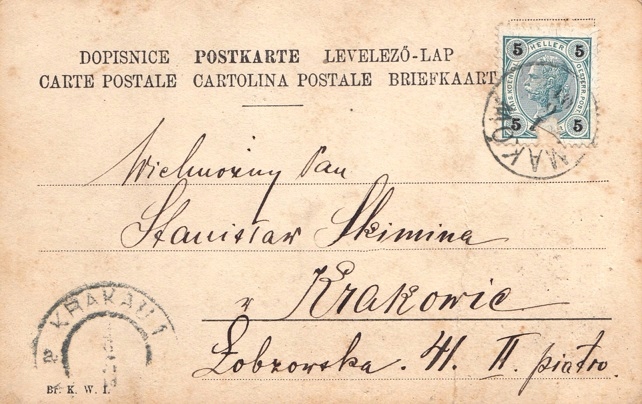 DOPISNICE POSTKARTE LEVELEZŐ-LAP
CARTE POSTALE CARTOLINA POSTALE BRIEFKAART
5 HELLER 5
5 5
MAKÓW
Wielmożny Pan
Stanisław Skimina
w Krakowie
Łobzowska. 41. II piatro.
KRAKAU 1
B.F. K. W. I.